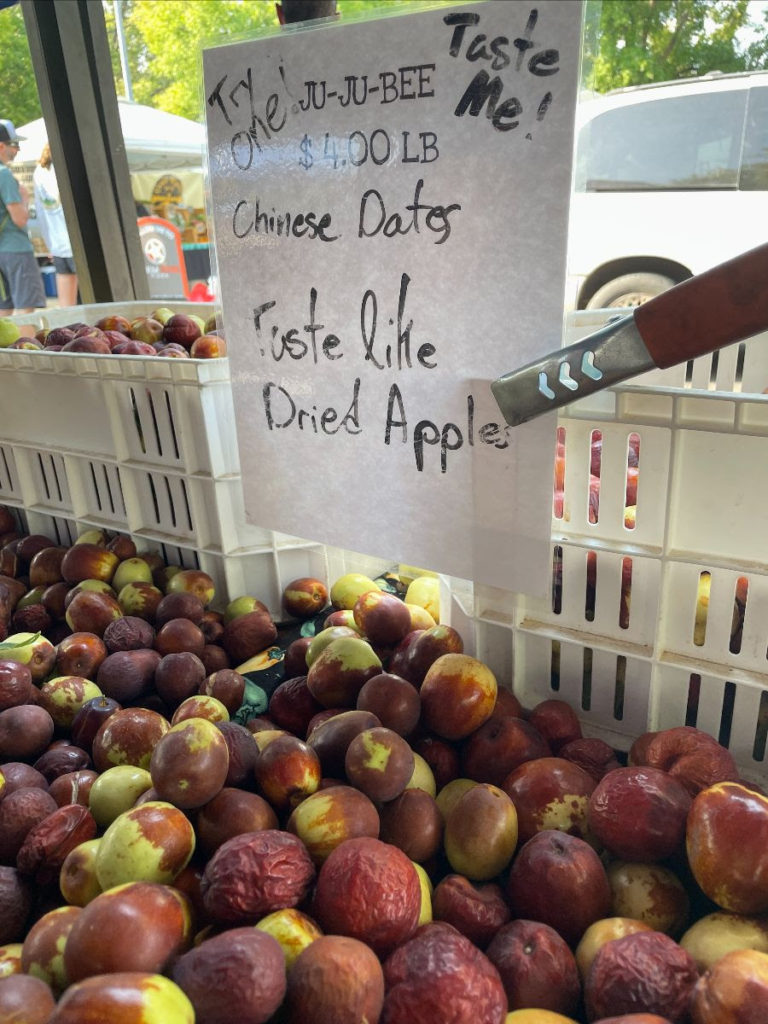 Try One!
JU-JU-BEE
$4.00 LB
Taste
Me!
Chinese Dates
Taste like
Dried Apples